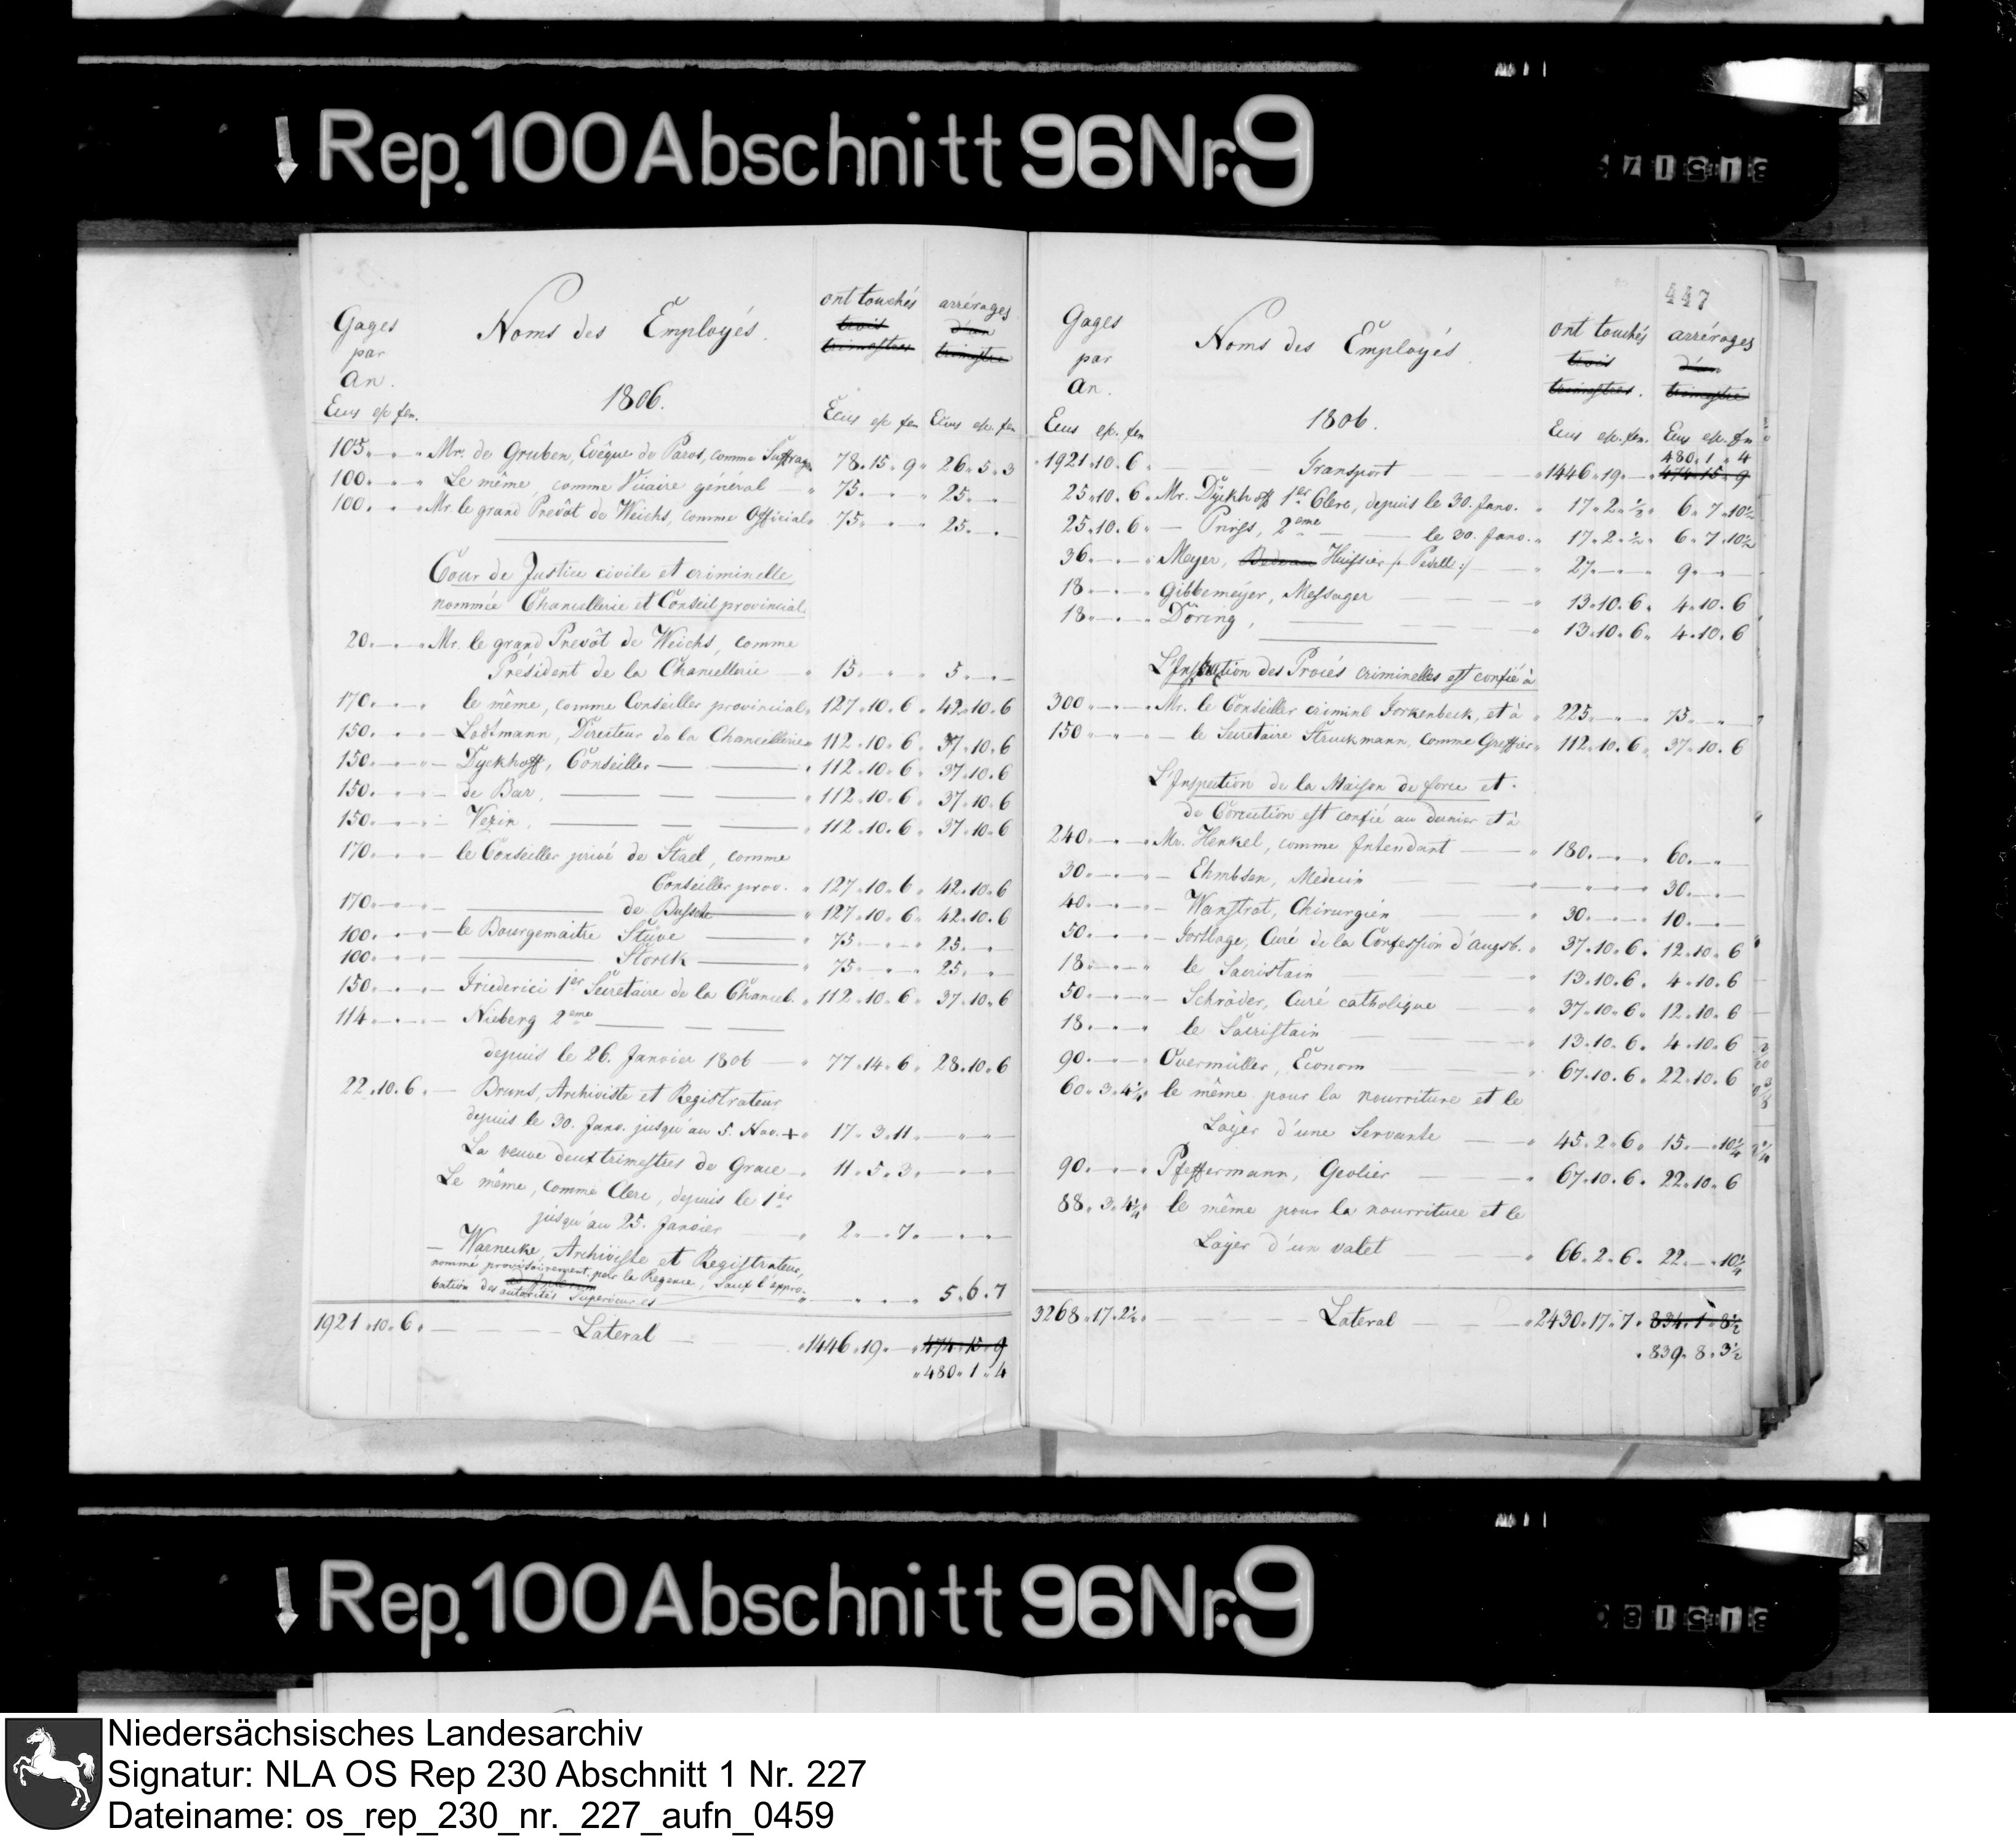 Rep. 100 Abschnitt 96 Nr. 9
Gages par An. Noms des Employés. ont touchés trois trimestres arrérages d'un trimestre
1806.
Ecus esc. fen. Ecus esc. fen Ecus esc. fen
105 „ — „ — Mr. de Gruben, Evêque de Paros, comme Suffrag. 78 „ 15 „ 9 „ 26 „ 5 „ 3
100 „ — „ — Le même, comme Vicaire général 75 „ — „ — 25 „ — „ —
100 „ — „ — Mr. le grand Prevôt de Weichs, comme Official 75 „ — „ — 25 „ — „ —
Cour de Justice civile et criminelle
nommée Chancellerie et Conseil provincial
20 „ — „ — Mr. le grand Prevôt de Weichs, comme
Président de la Chancellerie 15 „ — „ — 5 „ — „ —
170 „ — „ — le même, comme Conseiller provincial 127 „ 10 „ 6 „ 42 „ 10 „ 6
150 „ — „ — Lodtmann, Directeur de la Chancellerie 112 „ 10 „ 6 „ 37 „ 10 „ 6
150 „ — „ — Dyckhoff, Conseiller 112 „ 10 „ 6 „ 37 „ 10 „ 6
150 „ — „ — de Bar, 112 „ 10 „ 6 „ 37 „ 10 „ 6
150 „ — „ — Vezin, 112 „ 10 „ 6 „ 37 „ 10 „ 6
170 „ — „ — le Conseiller privé de Stael, comme
Conseiller prov. 127 „ 10 „ 6 „ 42 „ 10 „ 6
170 „ — „ — de Bussche 127 „ 10 „ 6 „ 42 „ 10 „ 6
100 „ — „ — le Bourgemaitre Stüve 75 „ — „ — 25 „ — „ —
100 „ — „ — Storck 75 „ — „ — 25 „ — „ —
150 „ — „ — Friederici 1er Secretaire de la Chancel. 112 „ 10 „ 6 „ 37 „ 10 „ 6
114 „ — „ — Nieberg 2eme
depuis le 26. Janvier 1806 77 „ 14 „ 6 „ 28 „ 10 „ 6
22 „ 10 „ 6 „ — Bruns, Archiviste et Registrateur
depuis le 30. Janv. jusqu'au 5. Nov. + 17 „ 3 „ 11 „ — „ — „ —
La veuve deux trimestres de Grace 11 „ 5 „ 3 „ — „ — „ —
Le même, comme Clerc, depuis le 1er
jusqu'au 25. Janvier 2 „ — „ 7 „ — „ — „ —
— Warnecke, Archiviste et Registrateur,
nommé provisoirement par la Regence, Sauf l'appro-
bation des autorités Superieures „ — „ — „ 5 „ 6 „ 7
1921 „ 10 „ 6 „ Lateral „ 1446 „ 19 „ — „ 474 „ 15 „ 9
„ 480 „ 1 „ 4
447
Gages par An. Noms des Employés ont touchés trois trimestres. arrérages d'un trimestre
1806.
Ecus esc. fen Ecus esc. fen. Ecus esc. fen
480 „ 1 „ 4
1921 „ 10 „ 6 „ Transport „ 1446 „ 19 „ — 474 „ 15 „ 9
25 „ 10 „ 6 „ Mr. Dyckhoff 1er Clerc, depuis le 30. Janv. 17 „ 2 „ ½ „ 6 „ 7 „ 10½
25 „ 10 „ 6 „ — 2eme — le 30. Janv. 17 „ 2 „ ½ „ 6 „ 7 „ 10½
36 „ — „ — Meyer, Bedeau Huissier /: Pedell :/ 27 „ — „ — 9 „ — „ —
18 „ — „ — Gibbemeyer, Messager 13 „ 10 „ 6 „ 4 „ 10 „ 6
18 „ — „ — Döring, 13 „ 10 „ 6 „ 4 „ 10 „ 6
des Procés criminelles est confié à
300 „ — „ — Mr. le Conseiller criminl Forkenbeck, et à 225 „ — „ — 75 „ — „ —
150 „ — „ — le Secretaire Struckmann, comme Greffier 112 „ 10 „ 6 „ 37 „ 10 „ 6
L'Inspection de la Maison de force et
de Correction est confié au dernier et à
240 „ — „ — Mr. Henkel, comme Intendant 180 „ — „ — 60 „ — „ —
30 „ — „ — Ehmbsen, Medecin „ — „ — 30 „ — „ —
40 „ — „ — Wanstrat, Chirurgien 30 „ — „ — 10 „ — „ —
50 „ — „ — Fortlage, Curé de la Confession d'Augsb. 37 „ 10 „ 6 „ 12 „ 10 „ 6
18 „ — „ — le Sacristain 13 „ 10 „ 6 „ 4 „ 10 „ 6
50 „ — „ — Schröder, Curé catholique 37 „ 10 „ 6 „ 12 „ 10 „ 6
18 „ — „ — le Sacristain 13 „ 10 „ 6 „ 4 „ 10 „ 6
90 „ — „ — Overmüller, Econom 67 „ 10 „ 6 „ 22 „ 10 „ 6
60 „ 3 „ 4¼ „ le même pour la nourriture et le
Loyer d'une Servante 45 „ 2 „ 6 „ 15 „ — „ 10¼
90 „ — „ — Pfeffermann, Geolier 67 „ 10 „ 6 „ 22 „ 10 „ 6
88 „ 3 „ 4¼ „ le même pour la nourriture et le
Loyer d'un valet 66 „ 2 „ 6 „ 22 „ — „ 10¼
3268 „ 17 „ 2½ „ Lateral „ 2430 „ 17 „ 7 „ 834 „ 1 „ 8½
„ 839 „ 8 „ 3½
Rep. 100 Abschnitt 96 Nr. 9
Niedersächsisches Landesarchiv
Signatur: NLA OS Rep 230 Abschnitt 1 Nr. 227
Dateiname: os_rep_230_nr._227_aufn_0459